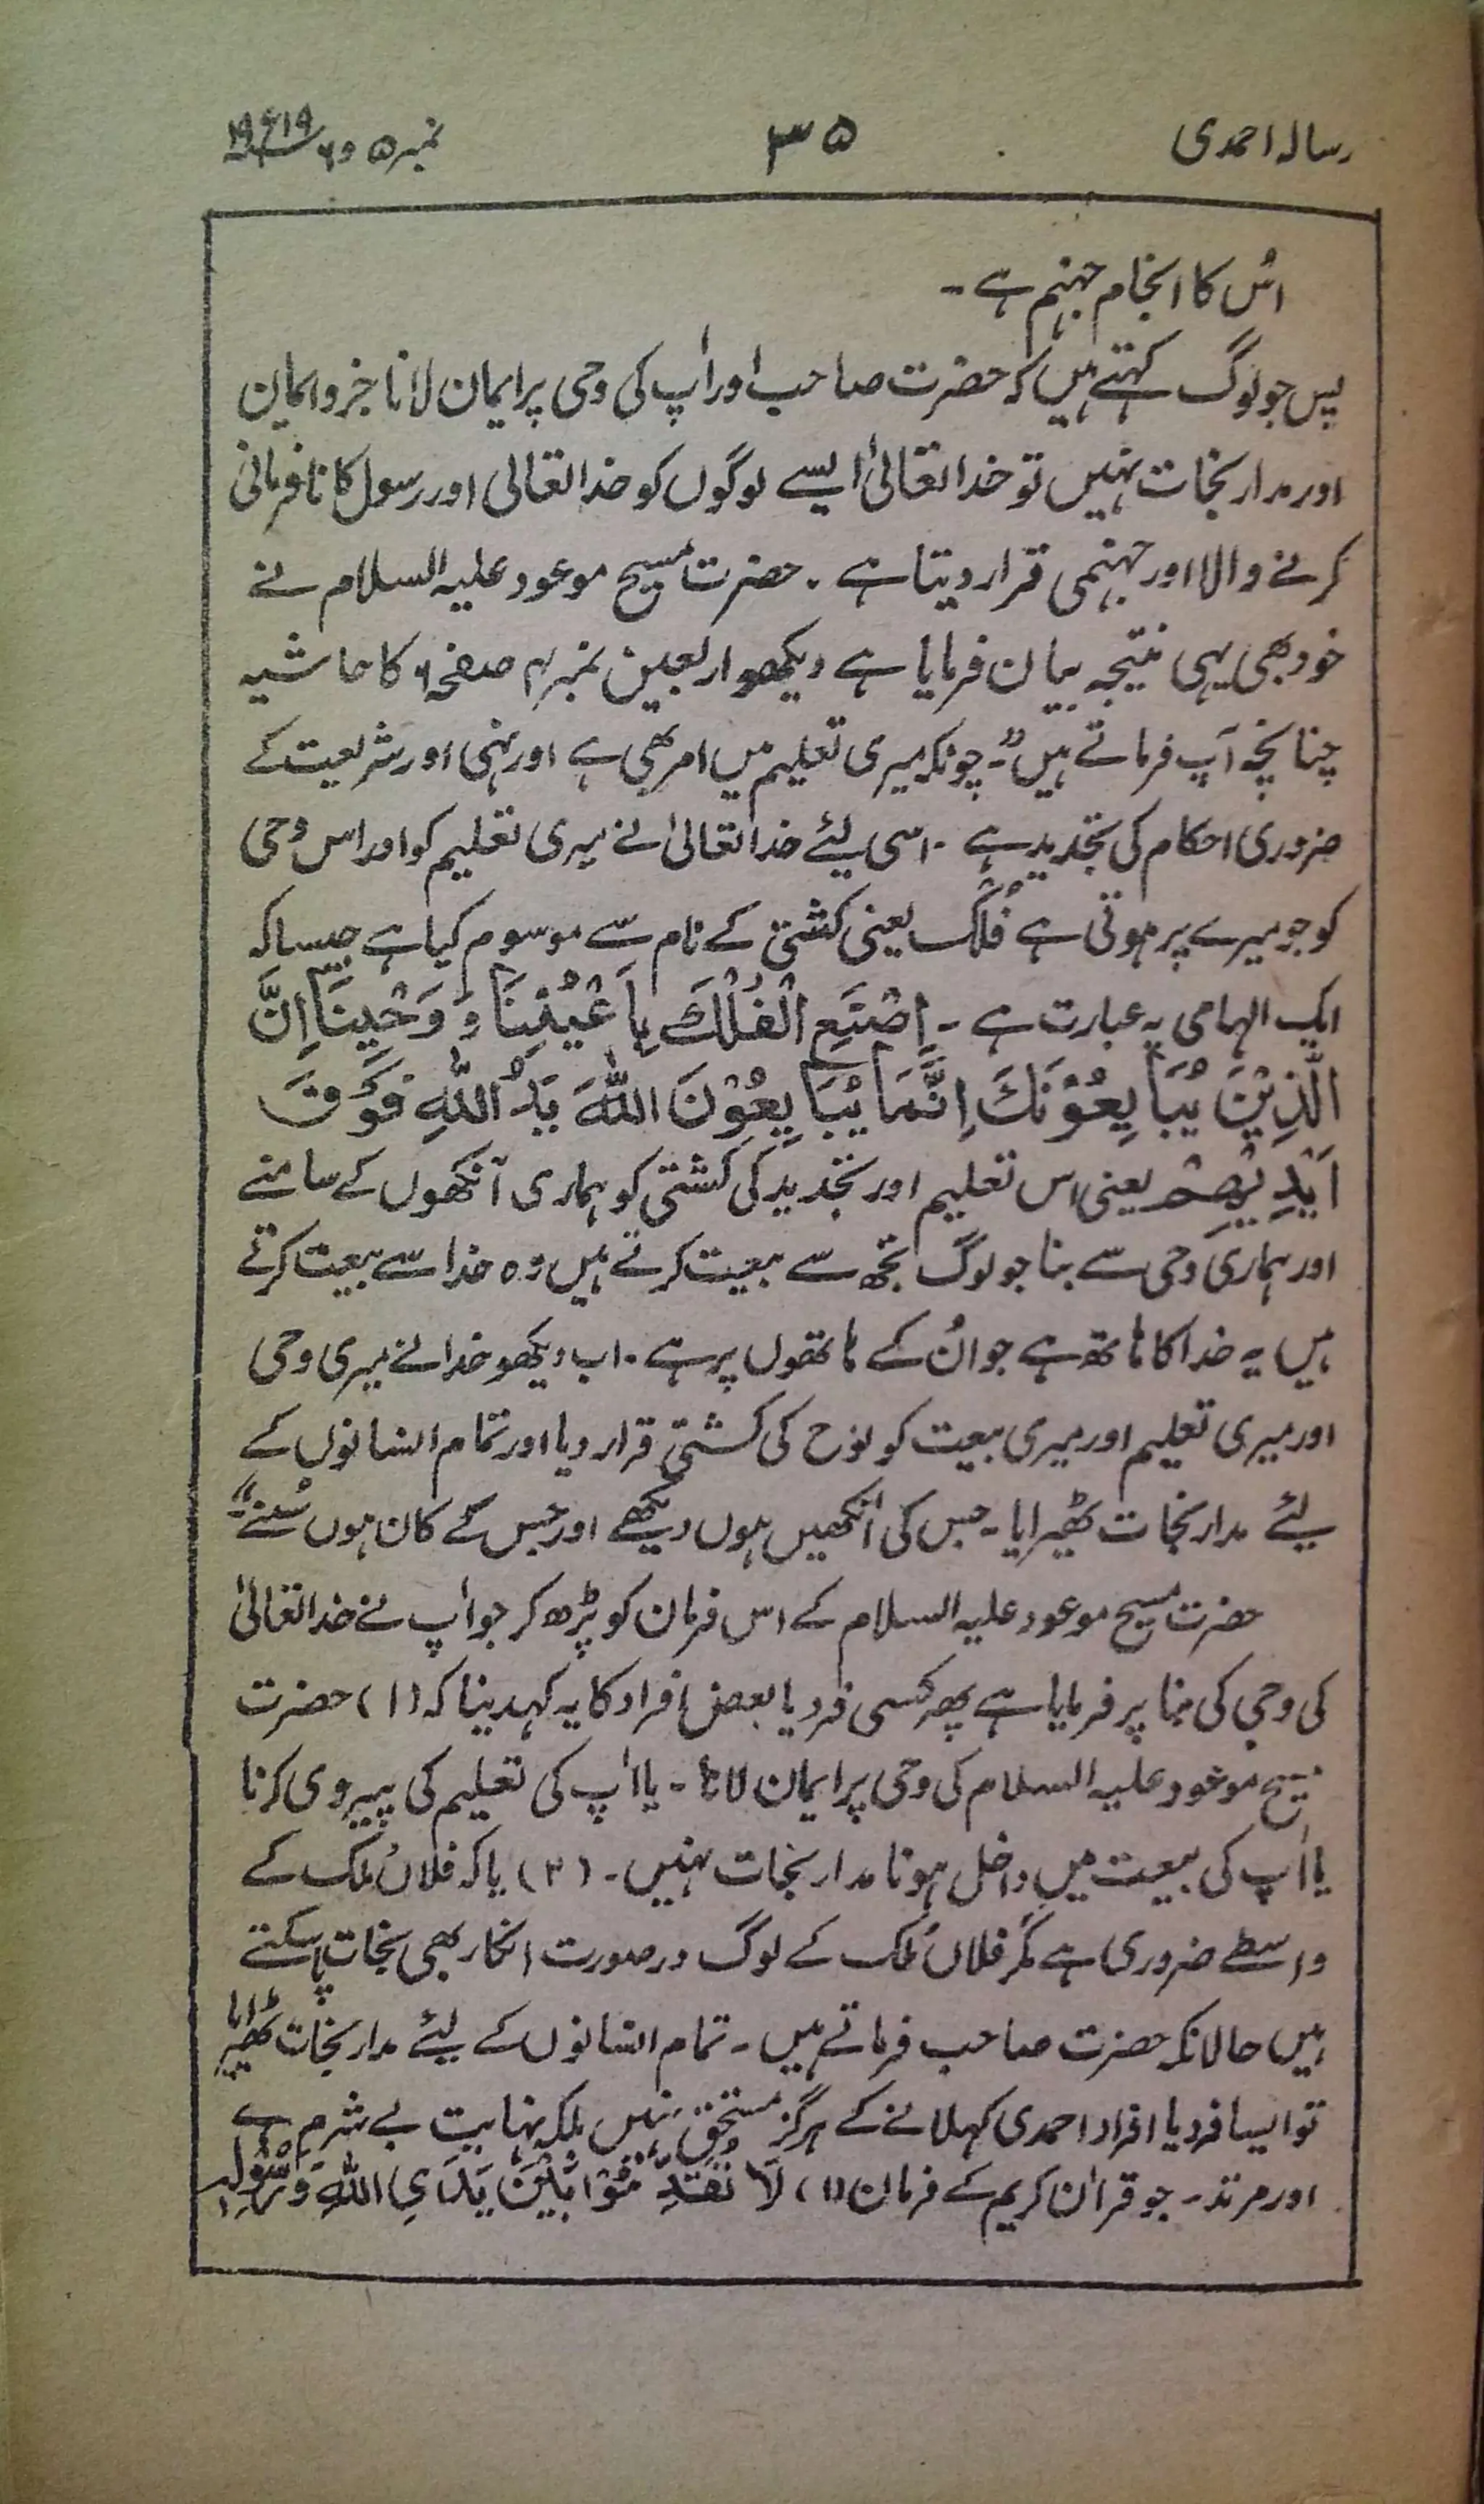 رسالہ احمدی
۳۵
نمبر ۵ و ۶ ۱۹۱۹ء
اُس کا انجام جہنم ہے ۔
پس جو لوگ کہتے ہیں کہ حضرت صاحب اور آپ کی وحی پر ایمان لانا جزو ایمان
اور مدار نجات نہیں تو خدا تعالیٰ ایسے لوگوں کو خدا تعالی اور رسول کا نافرمانی
کرنے والا اور جہنمی قرار دیتا ہے ۔ حضرت مسیح موعود علیہ السلام نے
خود بھی یہی نتیجہ بیان فرمایا ہے دیکھو اربعین نمبر ۴ صفحہ ۶ کا حاشیہ
چنانچہ آپ فرماتے ہیں ۔ "چونکہ میری تعلیم میں امر بھی ہے اور نہی اور شریعت کے
ضروری احکام کی تجدید ہے ۔ اسی لئے خدا تعالیٰ نے میری تعلیم کو اور اس وحی
کو جو میرے پر ہوتی ہے فُلْک یعنی کشتی کے نام سے موسوم کیا ہے جیسا کہ
ایک الہامی یہ عبارت ہے ۔ اِصْنَعِ الْفُلْكَ بِاَعْيُنِنَا وَ وَحْيِنَا اِنَّ
الَّذِيْنَ يُبَايِعُوْنَكَ اِنَّمَا يُبَايِعُوْنَ اللّٰهَ يَدُ اللّٰهِ فَوْقَ
اَيْدِيْهِمْ یعنی اس تعلیم اور تجدید کی کشتی کو ہماری آنکھوں کے سامنے
اور ہماری وحی سے بنا جو لوگ تجھ سے بیعت کرتے ہیں وہ خدا سے بیعت کرتے
ہیں یہ خدا کا ہاتھ ہے جو اُن کے ہاتھوں پر ہے ۔ اب دیکھو خدا نے میری وحی
اور میری تعلیم اور میری بیعت کو نوح کی کشتی قرار دیا اور تمام انسانوں کے
لئے مدار نجات ٹھیرایا ۔ جس کی آنکھیں ہوں دیکھے اور جس کے کان ہوں سُنے ۔"
حضرت مسیح موعود علیہ السلام کے اس فرمان کو پڑھ کر جو آپ نے خدا تعالیٰ
کی وحی کی بنا پر فرمایا ہے پھر کسی فرد یا بعض افراد کا یہ کہدینا کہ (۱) حضرت
مسیح موعود علیہ السلام کی وحی پر ایمان لانا ۔ یا آپ کی تعلیم کی پیروی کرنا
یا آپ کی بیعت میں داخل ہونا مدار نجات نہیں ۔ (۲) یا کہ فلاں ملک کے
واسطے ضروری ہے مگر فلاں ملک کے لوگ درصورت انکار بھی نجات پا سکتے
ہیں حالانکہ حضرت صاحب فرماتے ہیں ۔ تمام انسانوں کے لئے مدار نجات ٹھیرایا
تو ایسا فرد یا افراد احمدی کہلانے کے ہرگز مستحق نہیں بلکہ نہایت بے شرم ہے
اور مرتد ۔ جو قرآن کریم کے فرمان (۱) لَا تُقَدِّمُوْا بَيْنَ يَدَيِ اللّٰهِ وَرَسُوْلِهٖ